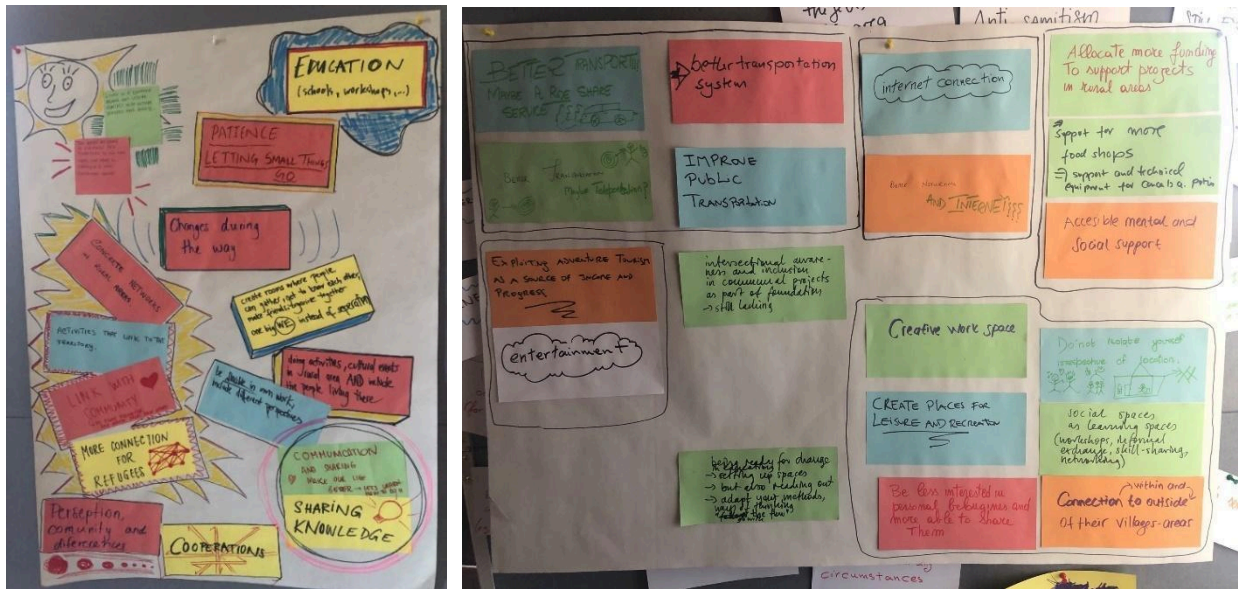 EDUCATION
(schools, workshops,...)
PATIENCE
LETTING SMALL THINGS
GO
Changes during
the way
CONCRETE NETWORKS
IN RURAL AREAS
create rooms where people
can gather, get to know each other,
make friends, organize together
one big (WE) instead of seperation
ACTIVITIES THAT LINK TO THE
TERRITORY.
doing activities, cultural events
in rural area AND include
the people living there
be flexible in own work,
include different perspectives
LINK WITH
COMMUNITY
MORE CONNECTION
FOR
REFUGEES
COMMUNICATION
AND SHARING
MAKE OUR LIFE
SHARING
KNOWLEDGE
Perception,
comunity and
diferencies
COOPERATIONS
Anti semitism
BETTER TRANSPORT!
MAYBE A RIDE SHARE
SERVICE
better transportation
system
Better Transportation
Maybe Teleportation?
IMPROVE
PUBLIC
TRANSPORTATION
internet connection
AND INTERNET
Allocate more funding
To support projects
in rural areas
Support for more
food shops
=> support and technical
equipment for
Accesible mental and
Social support
EXPLOITING ADVENTURE TOURISM
AS A SOURCE OF INCOME AND
PROGRESS
entertainment
intersectional aware-
ness and inclusion
in communal projects
as part of foundation
→ still lacking
Creative work space
Do not isolate yourself
irrespective of location.
CREATE PLACES FOR
LEISURE AND RECREATION
social spaces
as learning spaces
(workshops, informal
exchange, skill-sharing,
networking)
being ready for change
→ setting up spaces
→ but also reaching out
→ adapt your methods,
ways of thinking
Be less interested in
personal belongings and
more able to share
Them
within and
Connection to outside
of their villages-areas
circumstances